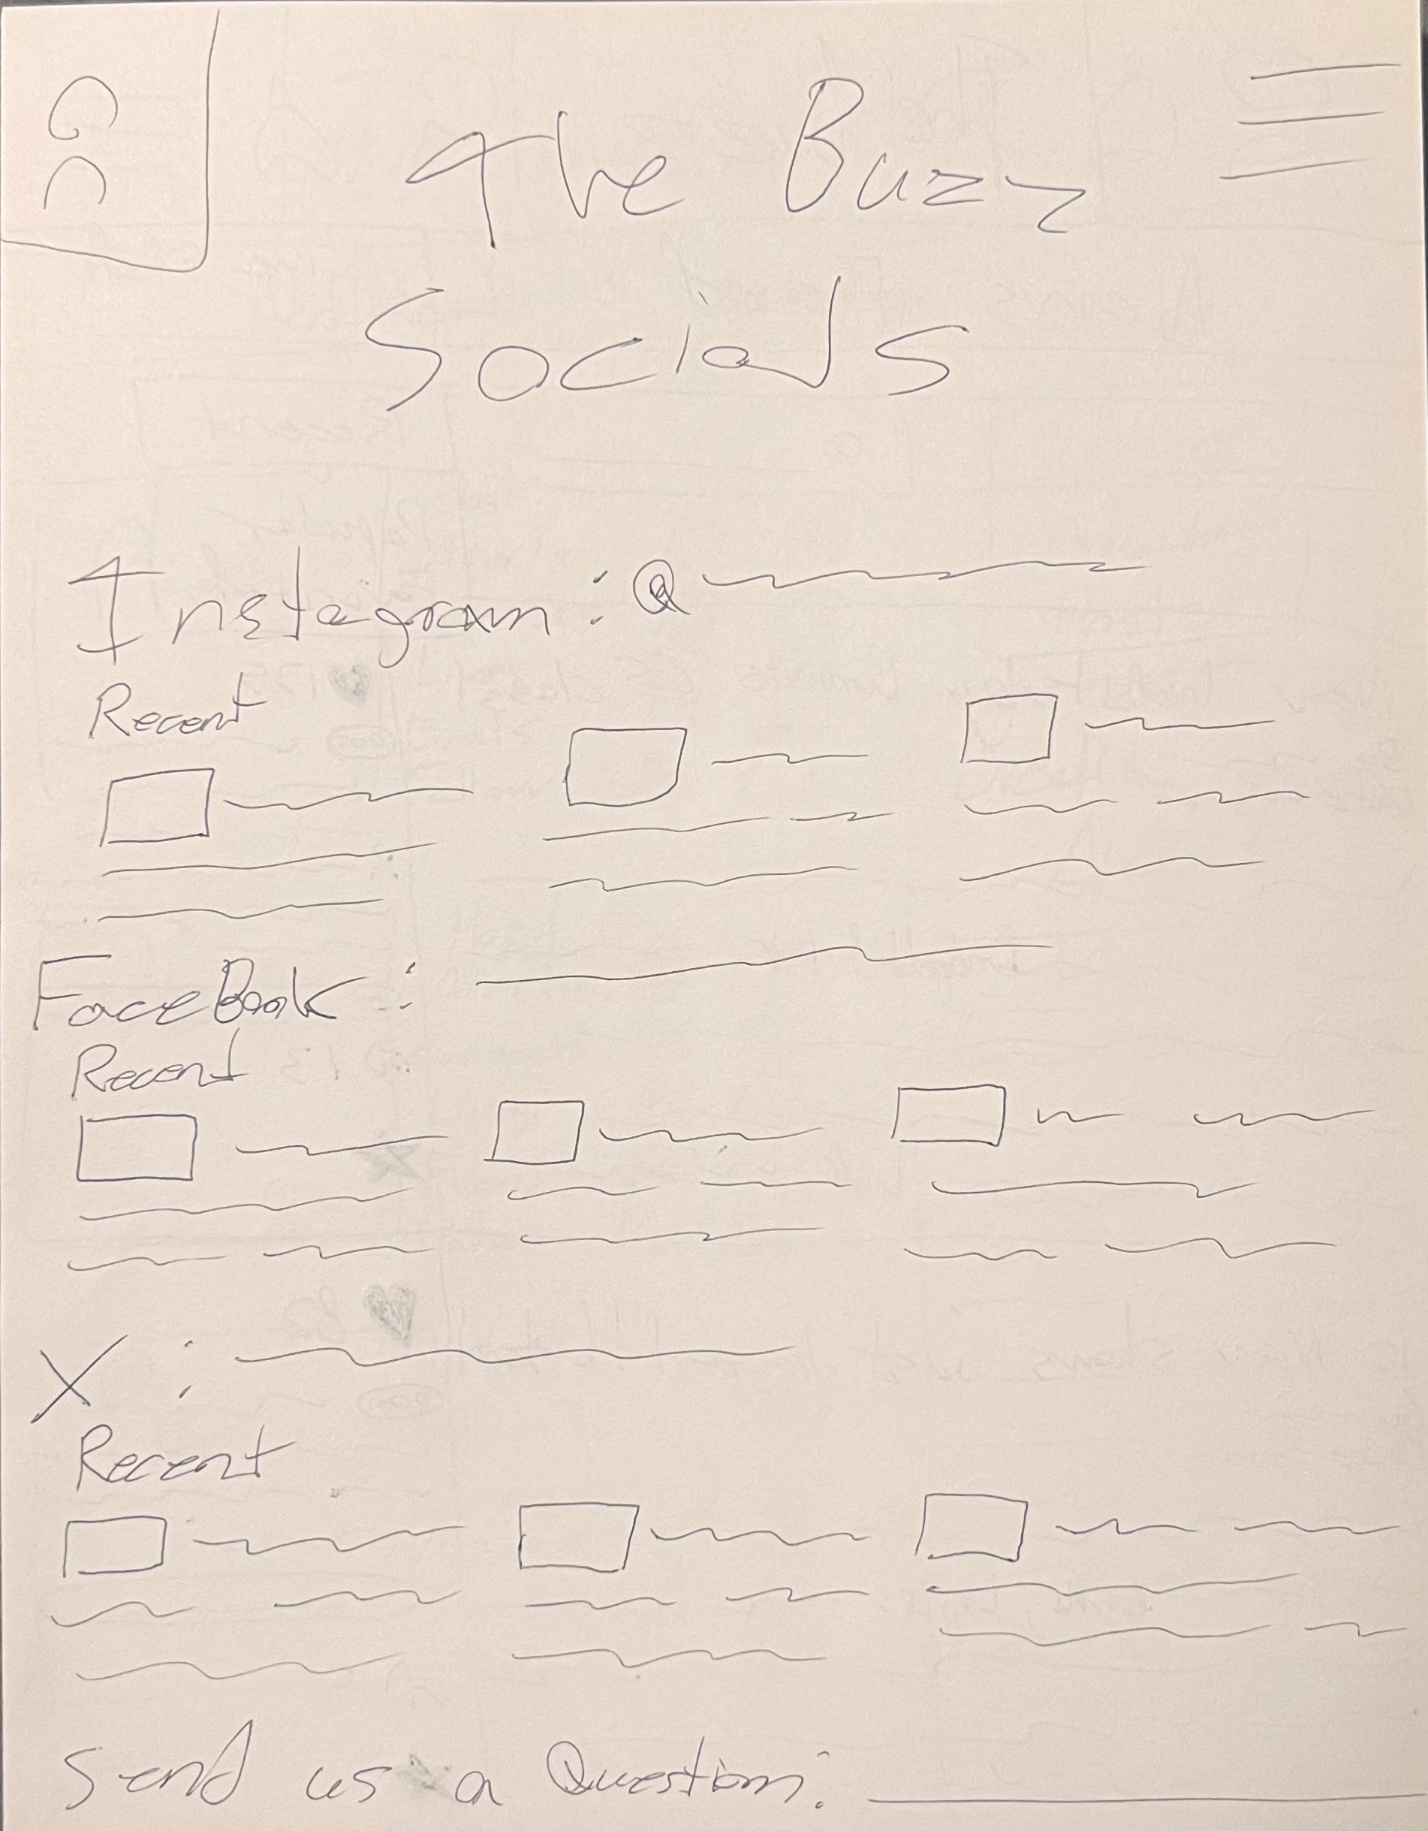 The Buzz
Socials
Instagram: @
Recent
FaceBook:
Recent
X:
Recent
Send us a Question: